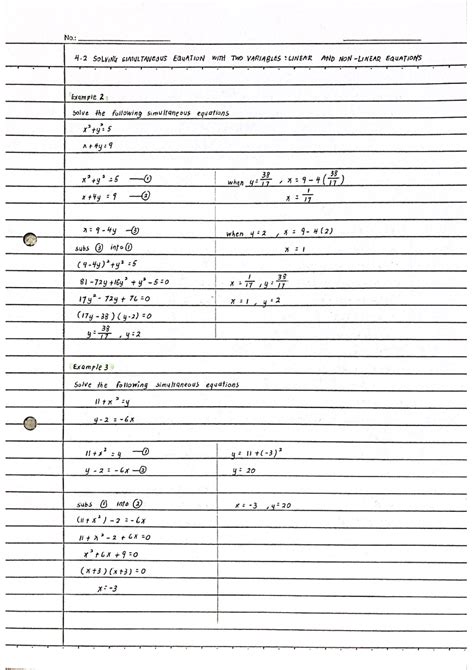 No.:
4.2 SOLVING SIMULTANEOUS EQUATION WITH TWO VARIABLES : LINEAR AND NON-LINEAR EQUATIONS
Example 2 :
Solve the following simultaneous equations
x² + y² = 5
x + 4y = 9
x² + y² = 5 —①
x + 4y = 9 —②
x = 9 - 4y —③
subs ③ into ①
(9 - 4y)² + y² = 5
81 - 72y + 16y² + y² - 5 = 0
17y² - 72y + 76 = 0
(17y - 38)(y - 2) = 0
y = 38/17 , y = 2
when y = 38/17 , x = 9 - 4(38/17)
x = 1/17
when y = 2 , x = 9 - 4(2)
x = 1
x = 1/17 , y = 38/17
x = 1 , y = 2
Example 3 :
Solve the following simultaneous equations
11 + x² = y
y - 2 = -6x
11 + x² = y —①
y - 2 = -6x —②
subs ① into ②
(11 + x²) - 2 = -6x
11 + x² - 2 + 6x = 0
x² + 6x + 9 = 0
(x + 3)(x + 3) = 0
x = -3
y = 11 + (-3)²
y = 20
x = -3 , y = 20